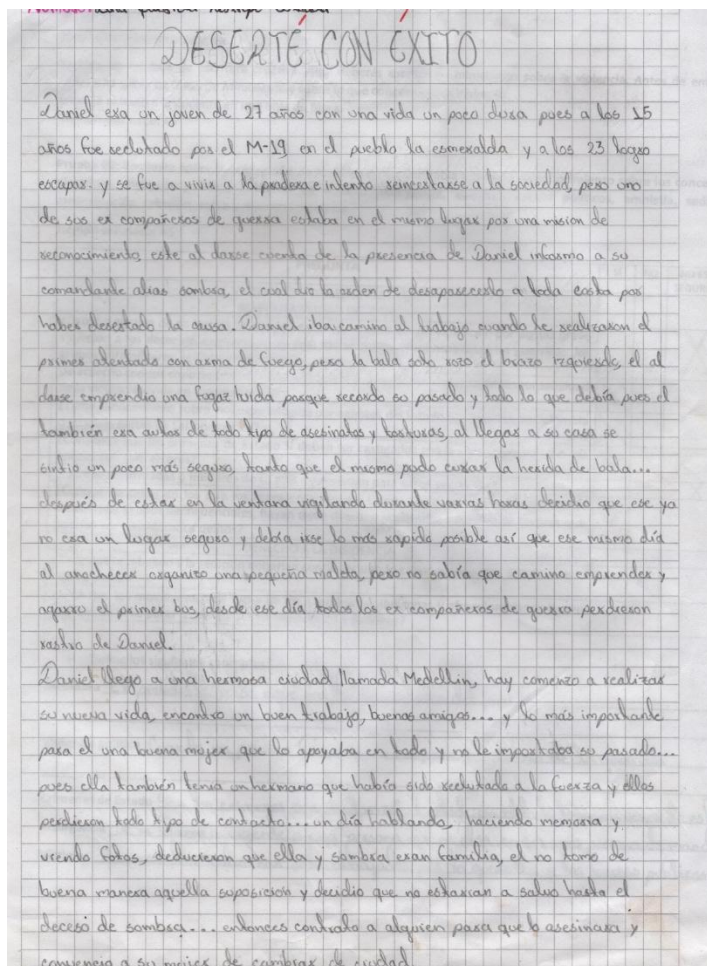 DESERTÉ CON EXITO
Daniel era un joven de 27 años con una vida un poco dura pues a los 15
años fue reclutado por el M-19 en el pueblo la esmeralda y a los 23 logro
escapar. y se fue a vivir a la pradera e intento reinsertarse a la sociedad, pero uno
de sus ex compañeros de guerra estaba en el mismo lugar por una mision de
reconocimiento, este al darse cuenta de la presencia de Daniel informo a su
comandante alias sombra, el cual dio la orden de desaparecerlo a toda costa por
haber desertado la causa. Daniel iba camino al trabajo cuando le realizaron el
primer atentado con arma de fuego, pero la bala solo rozo el brazo izquierdo, el al
darse emprendio una fugaz huida porque recordo su pasado y todo lo que debía pues el
también era autor de todo tipo de asesinatos y torturas, al llegar a su casa se
sintio un poco más seguro, tanto que el mismo pudo curar la herida de bala...
después de estar en la ventana vigilando durante varias horas decidio que ese ya
no era un lugar seguro y debía irse lo más rapido posible así que ese mismo día
al anochecer organizo una pequeña maleta, pero no sabía que camino emprender y
agarro el primer bus, desde ese día todos los ex compañeros de guerra perdieron
rastro de Daniel.
Daniel llego a una hermosa ciudad llamada Medellin, hay comenzo a realizar
su nueva vida, encontro un buen trabajo, buenos amigos... y lo más importante
para el una buena mujer que lo apoyaba en todo y no le importaba su pasado...
pues ella también tenia un hermano que había sido reclutado a la fuerza y ellos
perdieron todo tipo de contacto... un día hablando, haciendo memoria y
viendo fotos, dedujeron que ella y sombra eran familia, el no tomo de
buena manera aquella suposición y decidio que no estarian a salvo hasta el
deceso de sombra... entonces contrato a alguien para que lo asesinara y
convencio a su mujer de cambiar de ciudad